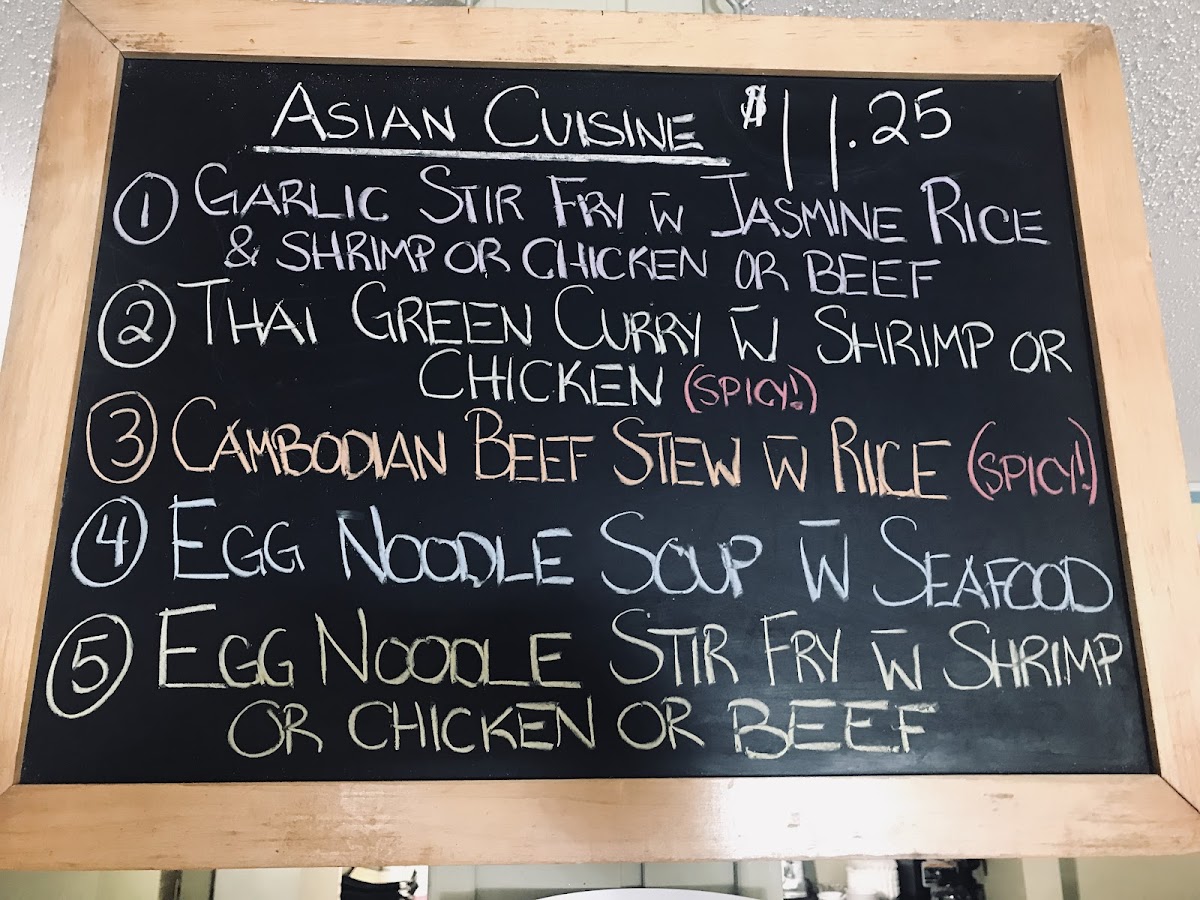 ASIAN CUISINE $11.25
1 GARLIC STIR FRY w̄ JASMINE RICE
& SHRIMP OR CHICKEN OR BEEF
2 THAI GREEN CURRY w̄ SHRIMP OR
CHICKEN (SPICY!)
3 CAMBODIAN BEEF STEW w̄ RICE (SPICY!)
4 EGG NOODLE SOUP w̄ SEAFOOD
5 EGG NOODLE STIR FRY w̄ SHRIMP
OR CHICKEN OR BEEF